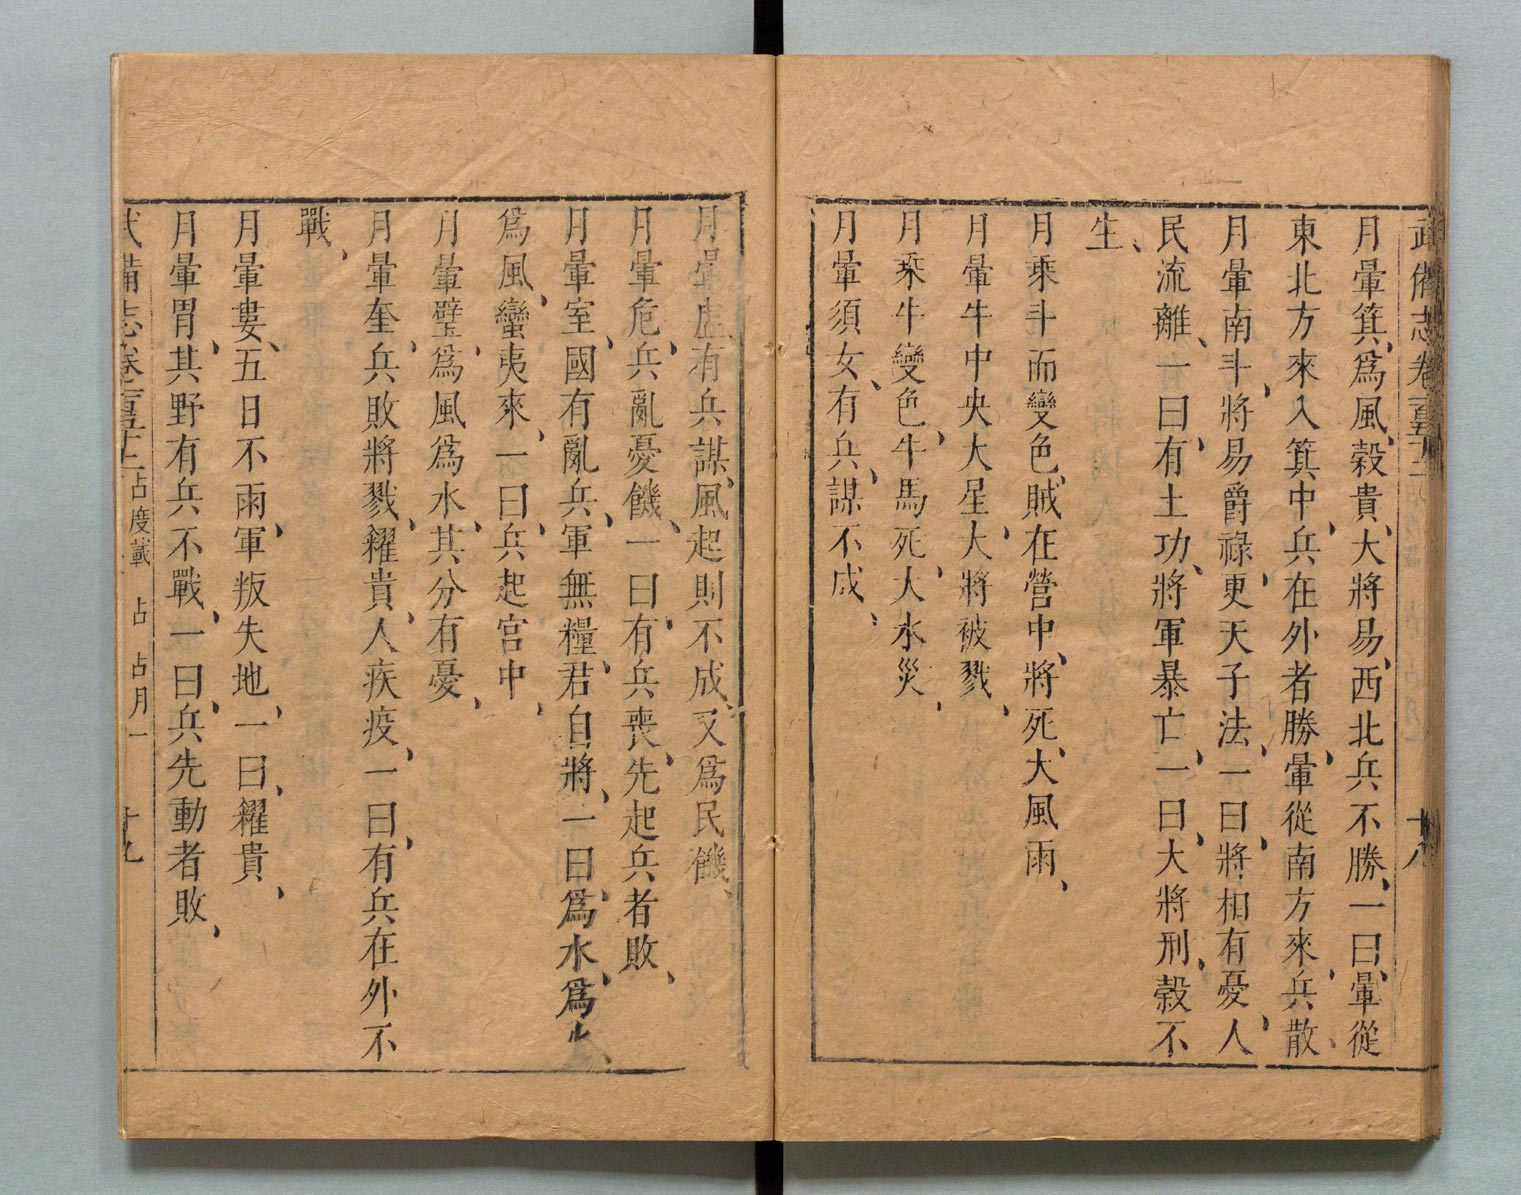 武備志卷一百五十二 十八
月暈箕、爲風、穀貴、大將易、西北兵不勝、一曰、暈從
東北方來入箕中、兵在外者勝、暈從南方來、兵散、
月暈南斗、將易爵祿、更天子法、一曰、將相有憂、人
民流離、一曰、有土功、將軍暴亡、一曰、大將刑、穀不
生、
月乘斗而變色、賊在營中、將死、大風雨、
月暈牛中央大星、大將被戮、
月乘牛變色、牛馬死、大水災、
月暈須女、有兵、謀不成、
月暈虛、有兵謀、風起則不成、又爲民饑、
月暈危、兵亂憂饑、一曰、有兵喪、先起兵者敗、
月暈室、國有亂兵、軍無糧、君自將、一曰、爲水、爲火、
爲風、蠻夷來、一曰、兵起宮中、
月暈壁、爲風爲水、其分有憂、
月暈奎、兵敗將戮、糴貴、人疾疫、一曰、有兵在外不
戰、
月暈婁、五日不雨、軍叛失地、一曰、糴貴、
月暈胃、其野有兵不戰、一曰、兵先動者敗、
武備志卷一百五十二 占度載 占 占月一 十九